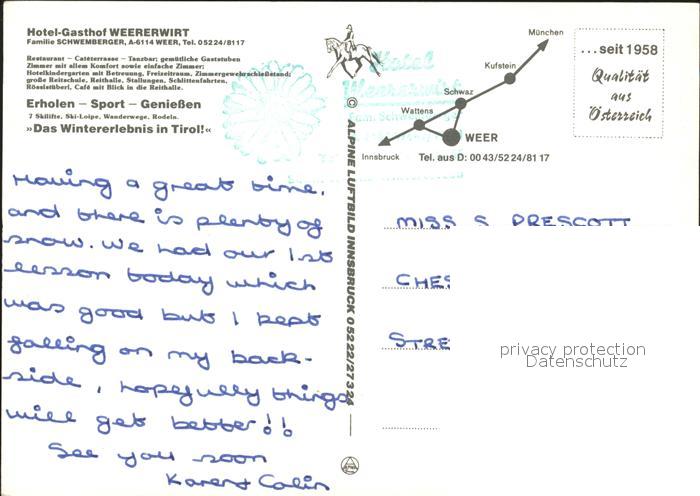 Hotel-Gasthof WEERERWIRT
Familie SCHWEMBERGER, A-6114 WEER, Tel. 05224/8117
Restaurant – Caféterrasse – Tanzbar; gemütliche Gaststuben
Zimmer mit allem Komfort sowie einfache Zimmer;
Hotelkindergarten mit Betreuung, Freizeitraum, Zimmergewehrschießstand;
große Reitschule, Reithalle, Stallungen, Schlittenfahrten,
Rösslstüberl, Café mit Blick in die Reithalle.
Erholen – Sport – Genießen
7 Skilifte, Ski-Loipe, Wanderwege, Rodeln.
»Das Wintererlebnis in Tirol!«
Hotel
Weererwirt
München
Kufstein
Schwaz
Wattens
WEER
Innsbruck
Tel. aus D: 0043/5224/8117
...seit 1958
Qualität
aus
Österreich
© ALPINE LUFTBILD INNSBRUCK 05222/27324
Having a great time,
and there is plenty of
snow. We had our 1st
lesson today which
was good but I kept
falling on my back-
side, hopefully things
will get better!!
See you soon
Karen & Colin
MISS S PRESCOTT
CHES
STRE
privacy protection
Datenschutz